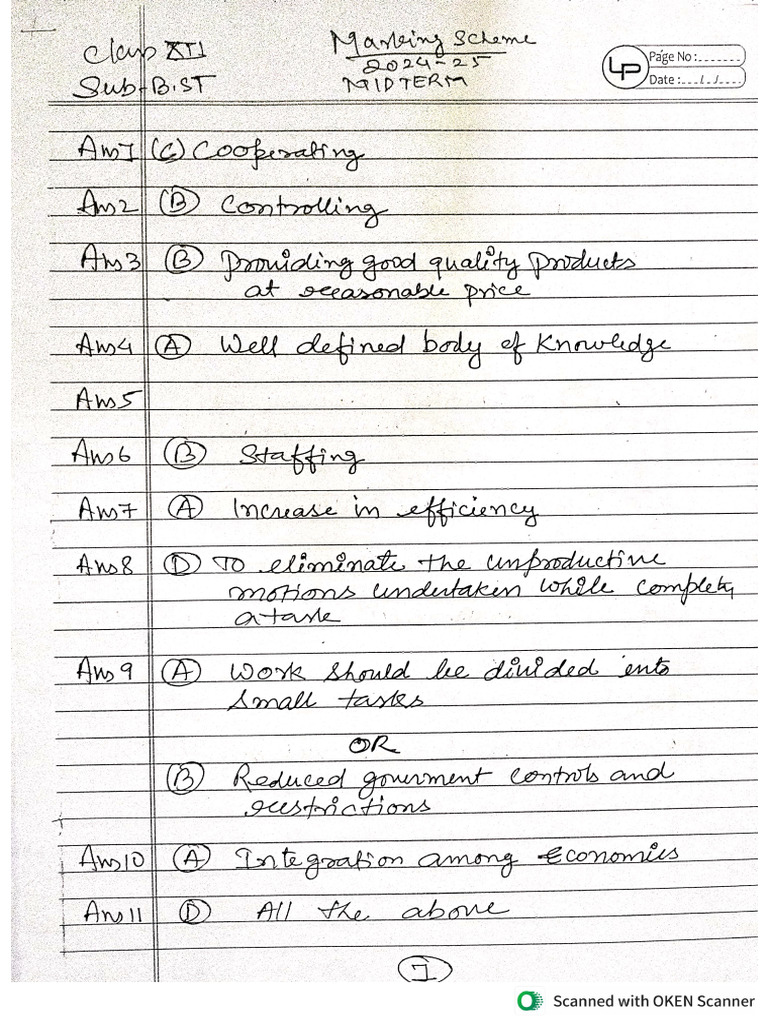 Marking Scheme
Class XII
2024-25
Sub-B.ST
MIDTERM
LP
Page No:.......
Date:.../.../....
Ans 1 (C) Cooperating
Ans 2 (B) Controlling
Ans 3 (B) Providing good quality products
at reasonable price
Ans 4 (A) Well defined body of Knowledge
Ans 5
Ans 6 (B) Staffing
Ans 7 (A) Increase in efficiency
Ans 8 (D) To eliminate the unproductive
motions undertaken while
a task
Ans 9 (A) Work should be divided into
small tasks
OR
(B) Reduced government controls and
restrictions
Ans 10 (A) Integration among Economies
Ans 11 (D) All the above
1
Scanned with OKEN Scanner